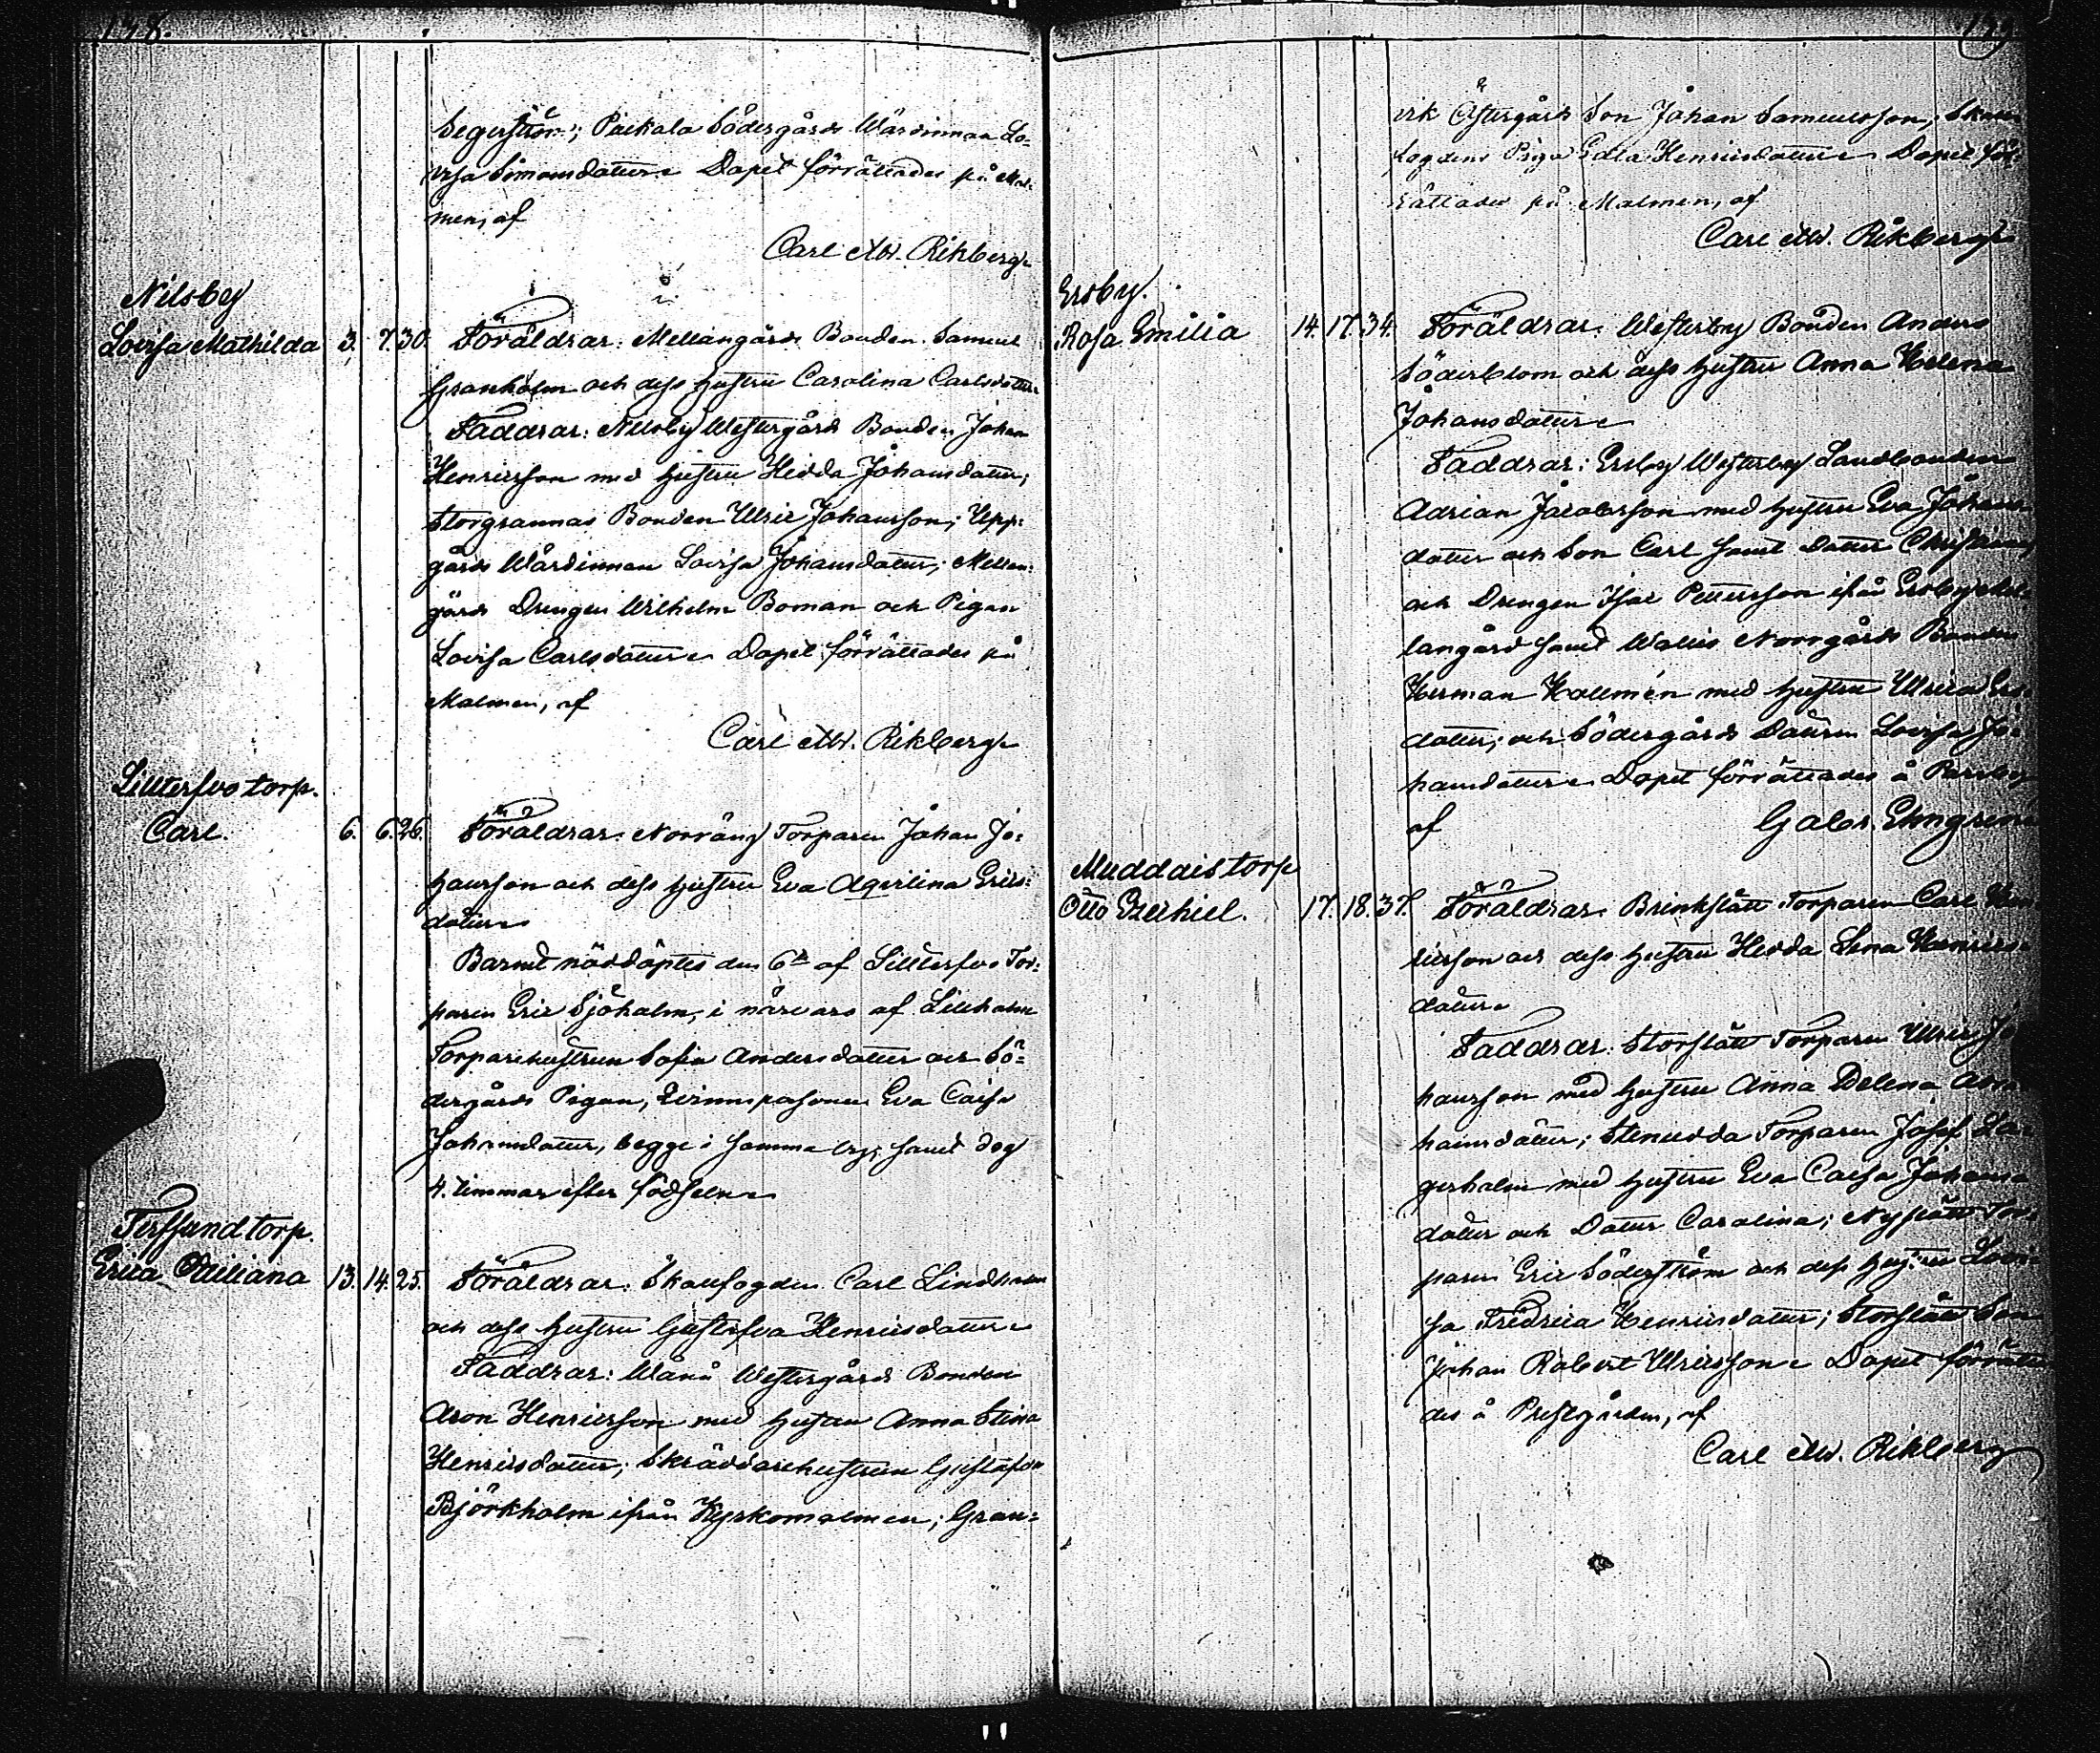 138.
Segerström; Paikala Södergårds Wärdinnan Lo-
visa Simonsdatter. Dopet förrättades på Mal-
men, af
Carl Alb. Rikberg.
Nilsby
Lovisa Mathilda 3. 7. 30. Föräldrar: Mellangårds Bonden Samuel
Granholm och dess hustru Carolina Carlsdatter
Faddrar: Nilsby Westergårds Bonden Johan
Henricsson med hustru Hedda Johansdatter;
Storgrannas Bonden Ulric Johansson; Upp-
gårds Wärdinnan Lovisa Johansdatter; Mellan-
gårds Drengen Wilhelm Boman och Pigan
Lovisa Carlsdatter. Dopet förrättades på
Malmen, af
Carl Alb. Rikberg.
Lilltervo torp.
Carl. 6. 6. 26. Föräldrar: Norräng Torparen Johan Jo-
hansson och dess hustru Eva Aqvilina Erics-
datter
Barnet nöddöptes den 6te af Lilltersvo Tor-
paren Eric Sjöholm, i närvaro af Lillholm
Torparehustrun Sofia Andersdatter och Sö-
dergårds Pigan, Qvinnspersonen Eva Caisa
Johansdatter, begge i samma by; samt dog
4. timmar efter födseln
Tersund torp.
Erica Miliana 13. 14. 25. Föräldrar: Skallfogden Carl Lindholm
och dess hustru Gustafva Henricsdatter
Faddrar: Wånå Westergårds Bonden
Aron Henricsson med hustru Anna Stina
Henricsdatter; Skräddarehustrun Gustafva
Björkholm ifrån Kyrkomalmen; Gran-
139
vik Östergårds Son Johan Samuelsson, Skall-
fogdens Piga Edla Henricsdatter. Dopet för-
rättades på Malmen, af
Carl Alb. Rikberg.
Ersby.
Rosa Emilia 14. 17. 34. Föräldrar: Westerby Bonden Anders
Söderblom och dess hustru Anna Helena
Johansdatter
Faddrar: Ersby Westerby Landbonden
Adrian Jacobsson med hustru Eva Johans-
datter och Son Carl samt Datter Christina
och Drengen Isac Pettersson ifrån Ersby Mel-
langård samt Wallis Norrgårds Bonden
Herman Hallmén med hustru Ulrica Erics-
datter; och Södergårds Dattren Lovisa Jo-
hansdatter. Dopet förrättades å Parsby
af Gabr. Ehngren
Muddais torp
Otto Ezechiel. 17. 18. 37. Föräldrar: Brinkslätt Torparen Carl Hen-
ricsson och dess hustru Hedda Lena Henrics-
datter
Faddrar: Storslätt Torparen Ulric Jo-
hansson med hustru Anna Helena
hamsdatter; Stenudda Torparen Josef La-
gerholm med hustru Eva Caisa Johans-
datter och Datter Carolina; Nyslätt Tor-
paren Eric Söderström och dess hustru Lovi-
sa Fredrica Henricsdatter; Storslätt Son
Johan Robert Ulricsson. Dopet förrätta-
des å Prestgården, af
Carl Alb. Rikberg